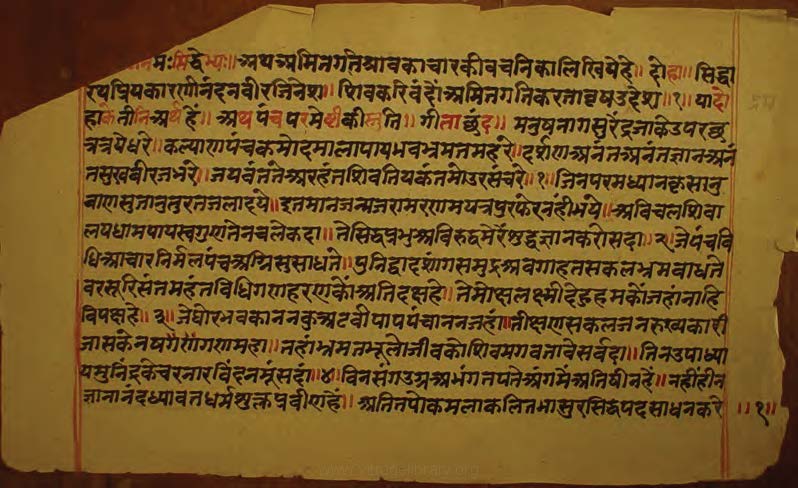 नमःसिद्धेभ्यः॥ अथ अमितगति श्रावकाचारकी वचनिका लिखियेहे॥ दोहा॥ सिद्धा
रथप्रियकारणीनंदनवीरजिनेश॥ शिवकरिवंदौंअमितगतिकरतावृषउदेश॥१॥ यादो
हाकेतीनिअर्थहें॥ अथ पंचपरमेष्ठीकीस्तुति॥ गीताछंद॥ मनुषनागसुरेंद्रजाकेउपरछ
त्रत्रयधरे॥ कल्याणपंचकमोदमालापायभवभ्रमतमहरे॥ दर्शणअनंतअनंतज्ञानअनं
तसुखवीरजभरे॥ जयवंततेअरहंतशिवतियकंतमोउरसंचरे॥१॥ जिनपरमध्यानकृसानु
बाणसुतानुतुरतजलादये॥ द्रुतमानजन्मजरामरणमयत्रपुरफेरनंहीभये॥ अविचलशिवा
लयधामपायस्वगुणतेनचलेकदा॥ तेसिद्धप्रभुअविरुद्धमेरेशुद्धज्ञानकरोसदा॥२॥ जेपंचवि
धिआचारनिर्मलपंचअग्निसुसाधते॥ पुनिद्वादशांगसमुद्रअवगाहतसकलभ्रमबाधते
वरसूरिसंतमहंतविधिगणहरणकोंअतिदक्षहे॥ तेमोक्षलक्ष्मीदेहुहमकोंजहांनाहि
विपक्षहे॥३॥ जेघोरभवकाननकुअटवीपापपंचाननजहां॥ तीक्षणसकलजनदुख्यकारी
जासकेनषगणमहा॥ तहांभ्रमतभूलेजीवकोशिवमगवतावेसर्वदा॥ तिनउपाध्या
यमुनिंद्रकेचरनारविंदनमूंसदां॥४॥ विनसंगउग्रअभंगतपतेअंगमेंअतिषीनहें॥ नहींहीन
ज्ञानानंदध्यावतधर्मशुल्कप्रवीणहें॥ अतितपोकमलाकलितभासुरसिद्धपदसाधनकरे ॥१॥
www.vitragelibrary.org